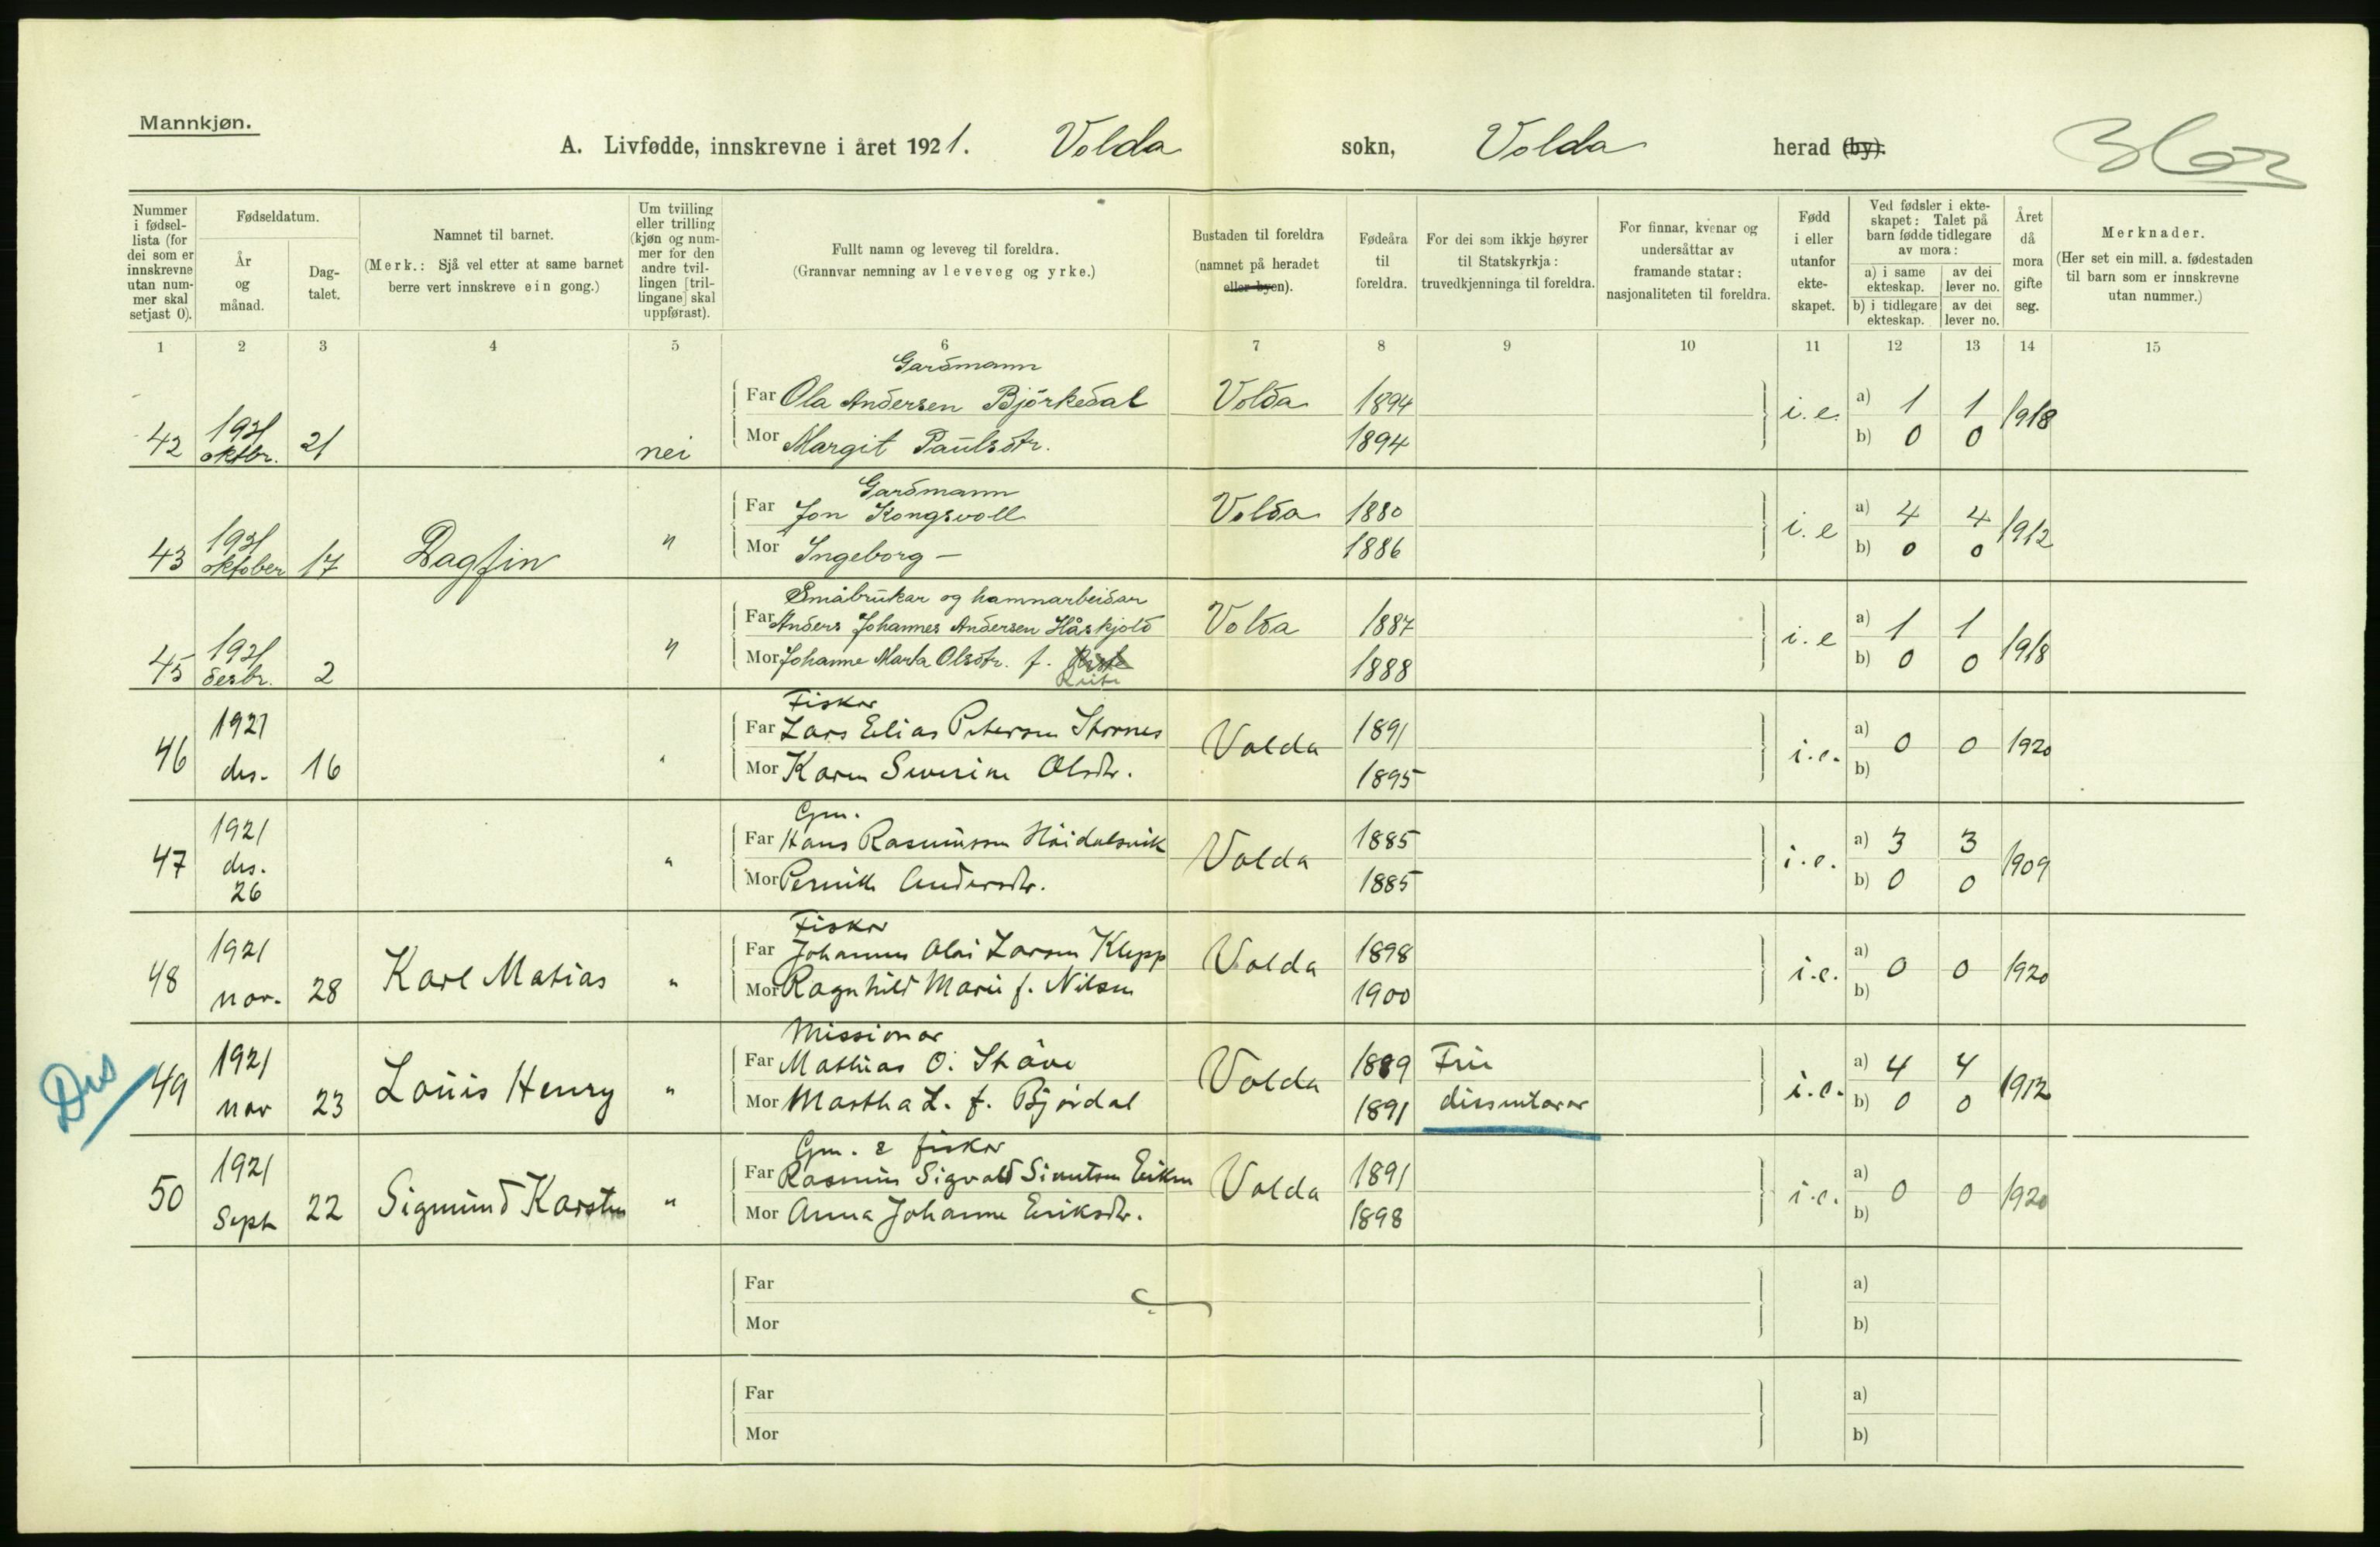 Mannkjøn.
A. Livfødde, innskrevne i året 1921. Volda sokn, Volda herad (by).
Nummer i fødsel-lista (for dei som er innskrevne utan num-mer skal setjast 0).
Fødseldatum.
År og månad.
Dag-talet.
Namnet til barnet.
(Merk.: Sjå vel etter at same barnet berre vert innskreve ein gong.)
Um tvilling eller trilling (kjøn og num-mer for den andre tvil-lingen [tril-lingane] skal uppførast).
Fullt namn og leveveg til foreldra.
(Grannvar nemning av leveveg og yrke.)
Bustaden til foreldra (namnet på heradet eller byen).
Fødeåra til foreldra.
For dei som ikkje høyrer til Statskyrkja: truvedkjenninga til foreldra.
For finnar, kvenar og undersåttar av framande statar: nasjonaliteten til foreldra.
Fødd i eller utanfor ekte-skapet.
Ved fødsler i ekte-skapet: Talet på barn fødde tidlegare av mora:
a) i same ekteskap.
av dei lever no.
b) i tidlegare ekteskap.
av dei lever no.
Året då mora gifte seg.
Merknader.
(Her set ein mill. a. fødestaden til barn som er innskrevne utan nummer.)
1 2 3 4 5 6 7 8 9 10 11 12 13 14 15
Gardmann
42 1921 oktbr. 21 nei Far Ola Andersen Björkedal Volda 1894 i.e. a) 1 1 1918
Mor Margit Paulsdtr. 1894 b) 0 0
Gardmann
43 1921 oktober 17 Dagfin " Far Jon Kongsvoll Volda 1880 i.e a) 4 4 1912
Mor Ingeborg — 1886 b) 0 0
Småbrukar og hamnarbeidar
45 1921 desbr. 2 " Far Anders Johannes Andersen Håskjold Volda 1887 i.e a) 1 1 1918
Mor Johanne Marta Olsdtr. f. 1888 b) 0 0
Fisker
46 1921 des. 16 " Far Lars Elias Petersen Stornes Volda 1891 i.e. a) 0 0 1920
Mor Karen Severine Olsdtr. 1895 b)
Gm.
47 1921 des. 26 " Far Hans Rasmussen Höidalsvik Volda 1885 i.e. a) 3 3 1909
Mor Pernille Andersdtr. 1885 b) 0 0
Fisker
48 1921 nov. 28 Karl Matias " Far Johannes Olai Larsen Klepp Volda 1898 i.e. a) 0 0 1920
Mor Ragnhild Marie f. Nilsen 1900 b)
Missionær
Dis 49 1921 nov 23 Louis Henry " Far Mathias O. Støve Volda 1889 Frie i.e. a) 4 4 1912
Mor Martha L. f. Bjørdal 1891 dissentarar b) 0 0
Gm. & fisker
50 1921 Sept 22 Sigmund Karsten " Far Rasmus Sigvald Sivertsen Eiksen Volda 1891 i.e. a) 0 0 1920
Mor Anna Johanne Eriksdtr. 1898 b)
Far a)
Mor b)
Far a)
Mor b)